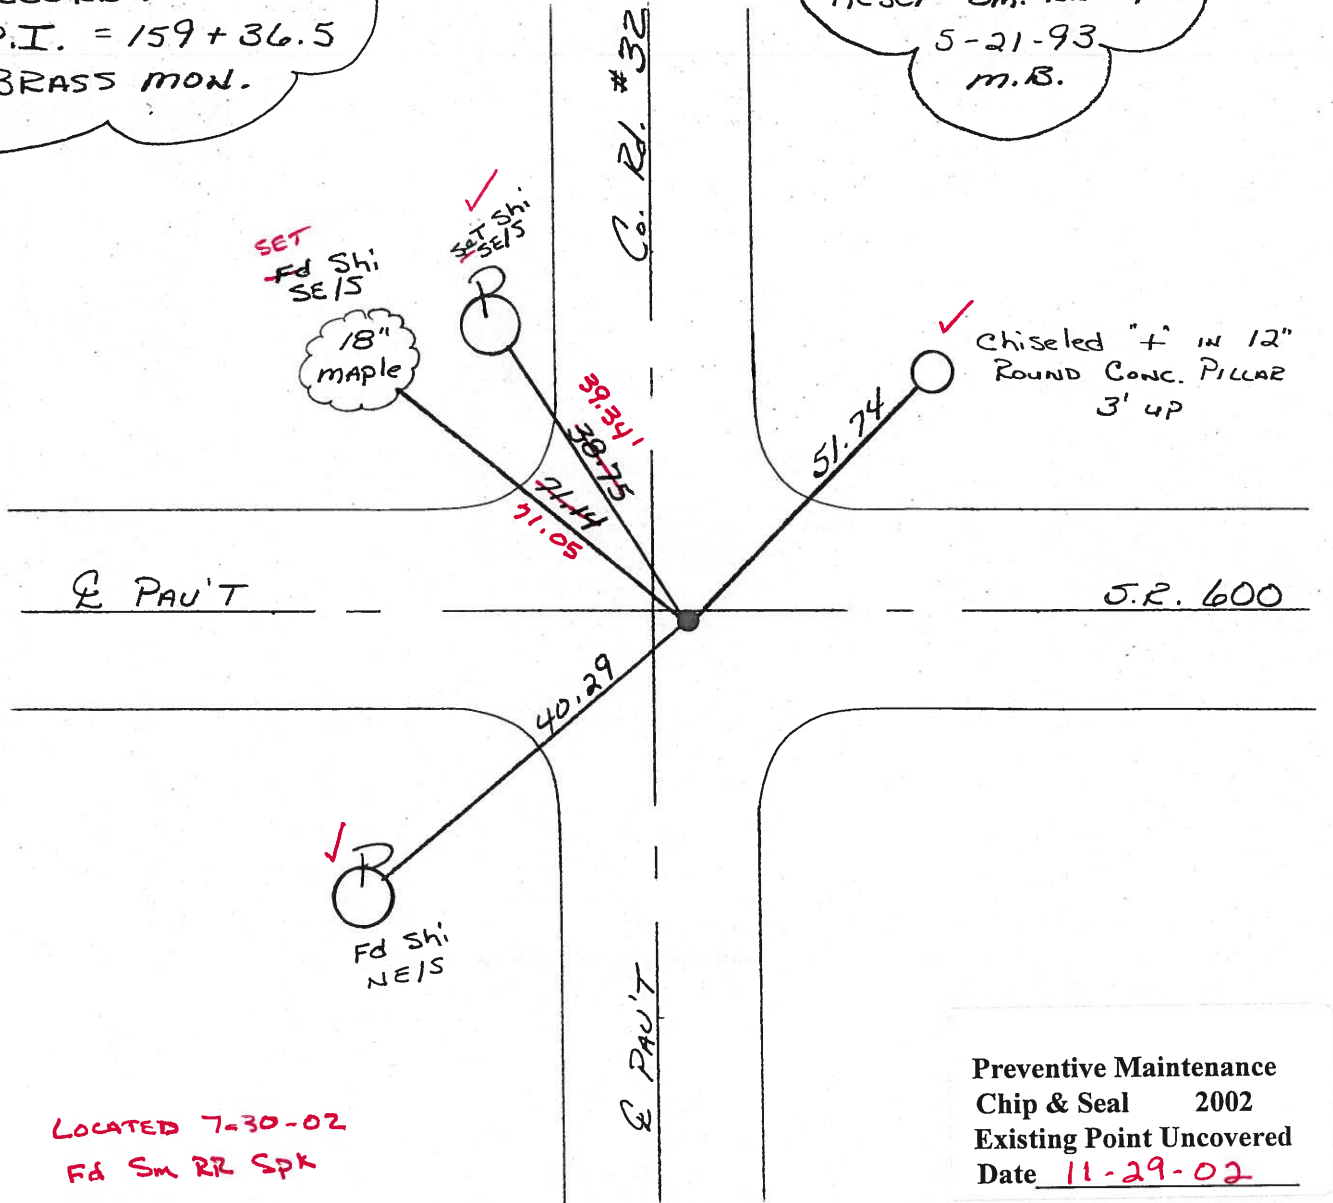 P.I. = 159+36.5
BRASS MON.
5-21-93
M.B.
Co. Rd. #32
SET
Fd Shi
SE/S
18"
MAPLE
SET Shi
SE/S
39.34'
38.75
71.14
71.05
51.74
Chiseled "+" IN 12"
ROUND CONC. PILLAR
3' UP
℄ PAV'T
S.R. 600
40.29
Fd Shi
NE/S
℄ PAV'T
LOCATED 7-30-02
Fd Sm RR Spk
Preventive Maintenance
Chip & Seal 2002
Existing Point Uncovered
Date 11-29-02